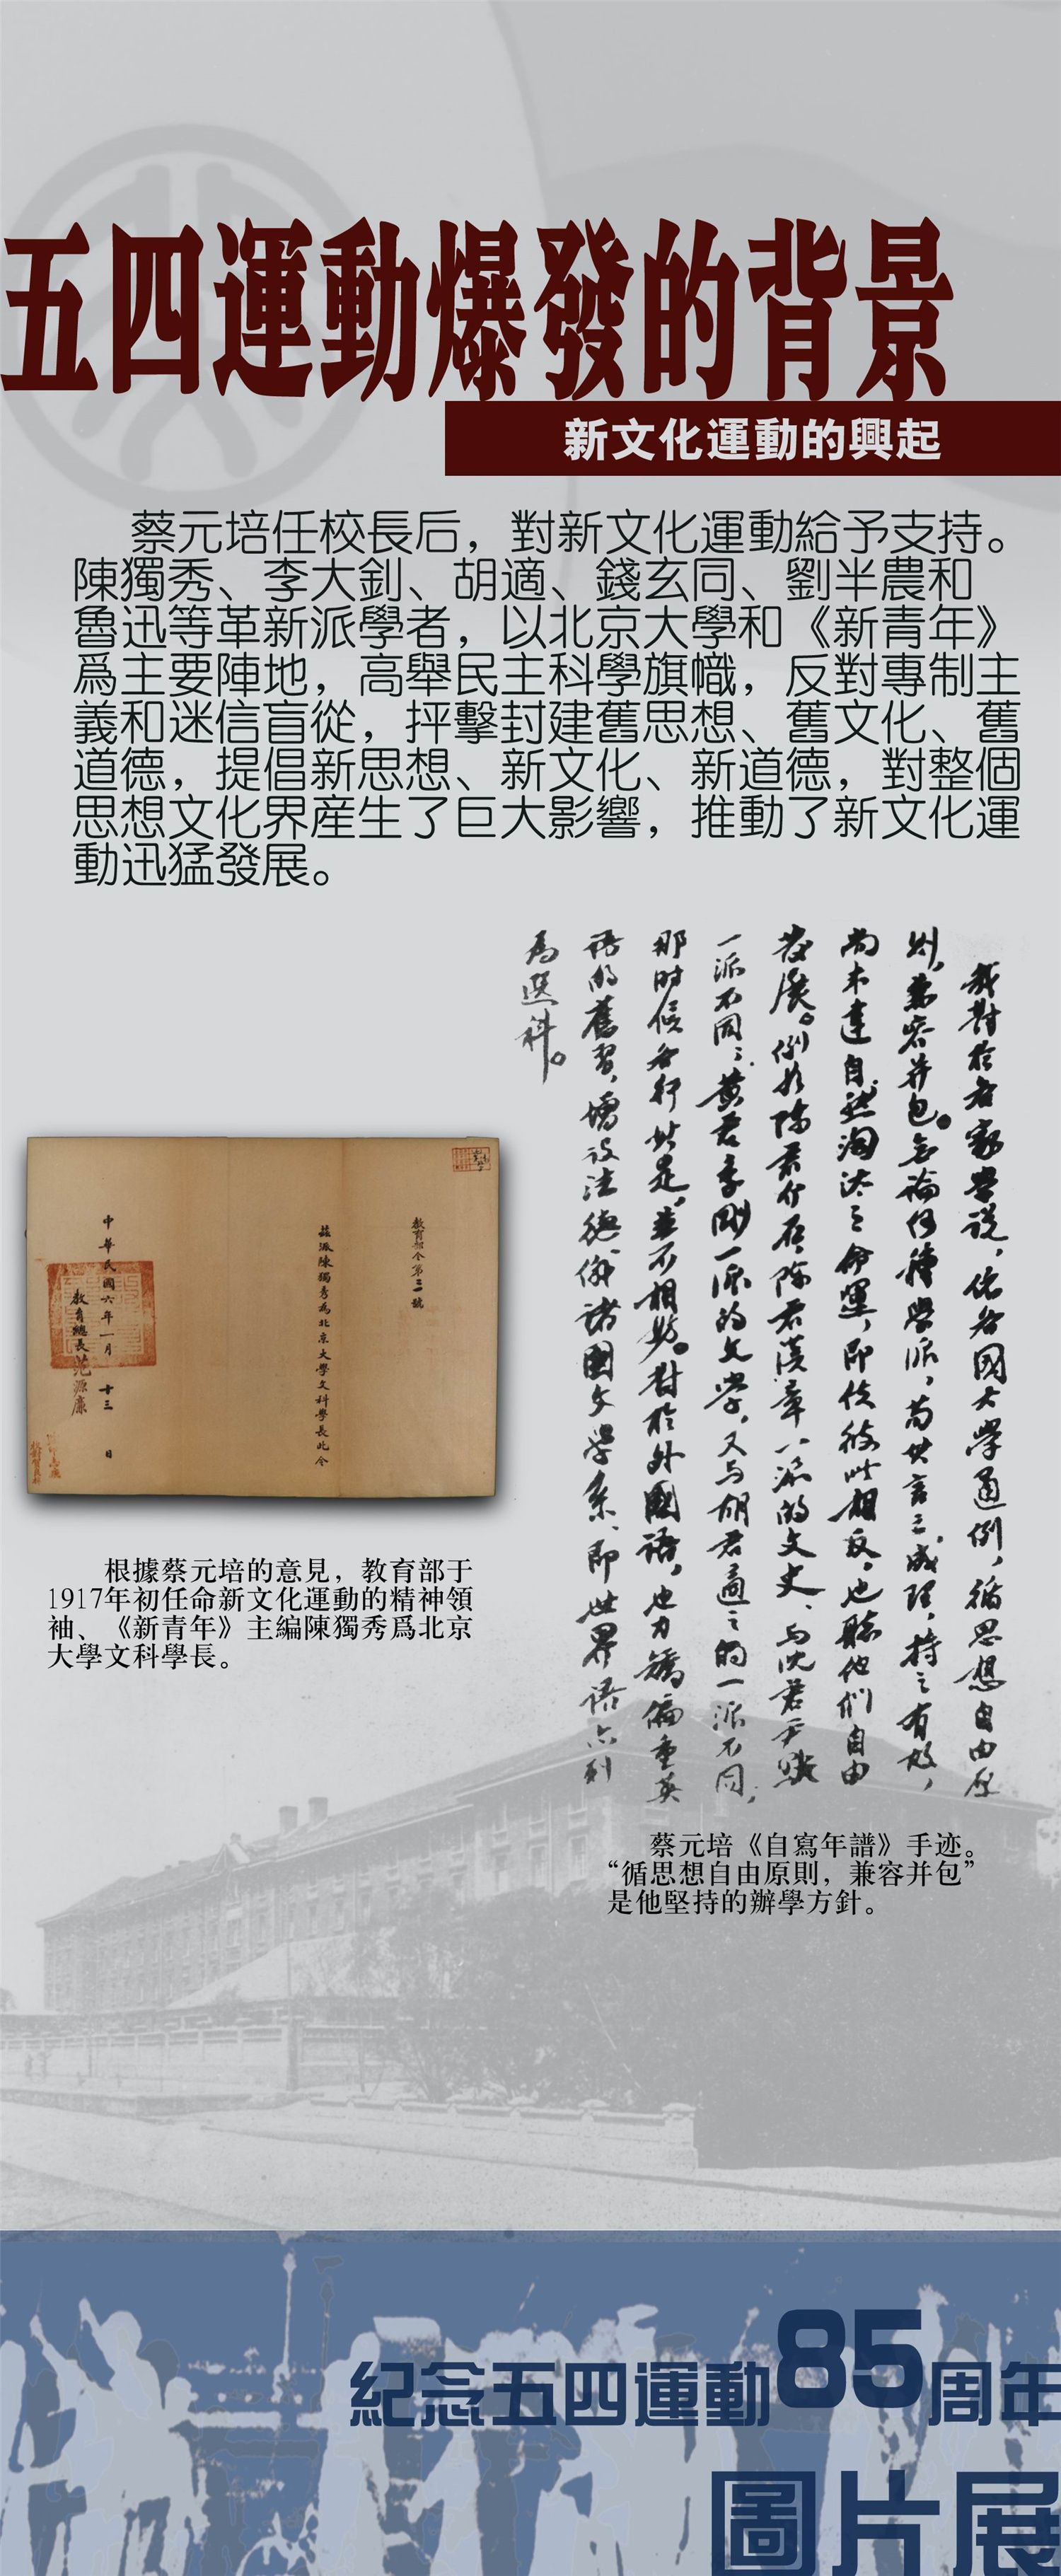 五四運動爆發的背景
新文化運動的興起
蔡元培任校長后，對新文化運動給予支持。
陳獨秀、李大釗、胡適、錢玄同、劉半農和
魯迅等革新派學者，以北京大學和《新青年》
爲主要陣地，高舉民主科學旗幟，反對專制主
義和迷信盲從，抨擊封建舊思想、舊文化、舊
道德，提倡新思想、新文化、新道德，對整個
思想文化界産生了巨大影響，推動了新文化運
動迅猛發展。
我對於各家學說，依各國大學通例，循思想自由原
則，兼容并包。無論何種學派，苟其言之成理，持之有故，
尚未達自然淘汰之命運，即使彼此相反，也聽他們自由
發展。例如陳君介石、陳君漢章一派的文史，与沈君尹默
一派不同；黃君季剛一派的文學，又与胡君適之的一派不同，
那时候各行其是，並不相妨。對於外國語，也力矯偏重英
語的舊習，增設法德俄諸國文學系，即世界语亦列
為選科。
教育部令第三號
茲派陳獨秀為北京大學文科學長此令
中華民國六年一月十三日
教育總長范源廉
根據蔡元培的意見，教育部于
1917年初任命新文化運動的精神領
袖、《新青年》主編陳獨秀爲北京
大學文科學長。
蔡元培《自寫年譜》手迹。
“循思想自由原則，兼容并包”
是他堅持的辦學方針。
紀念五四運動85周年
圖片展